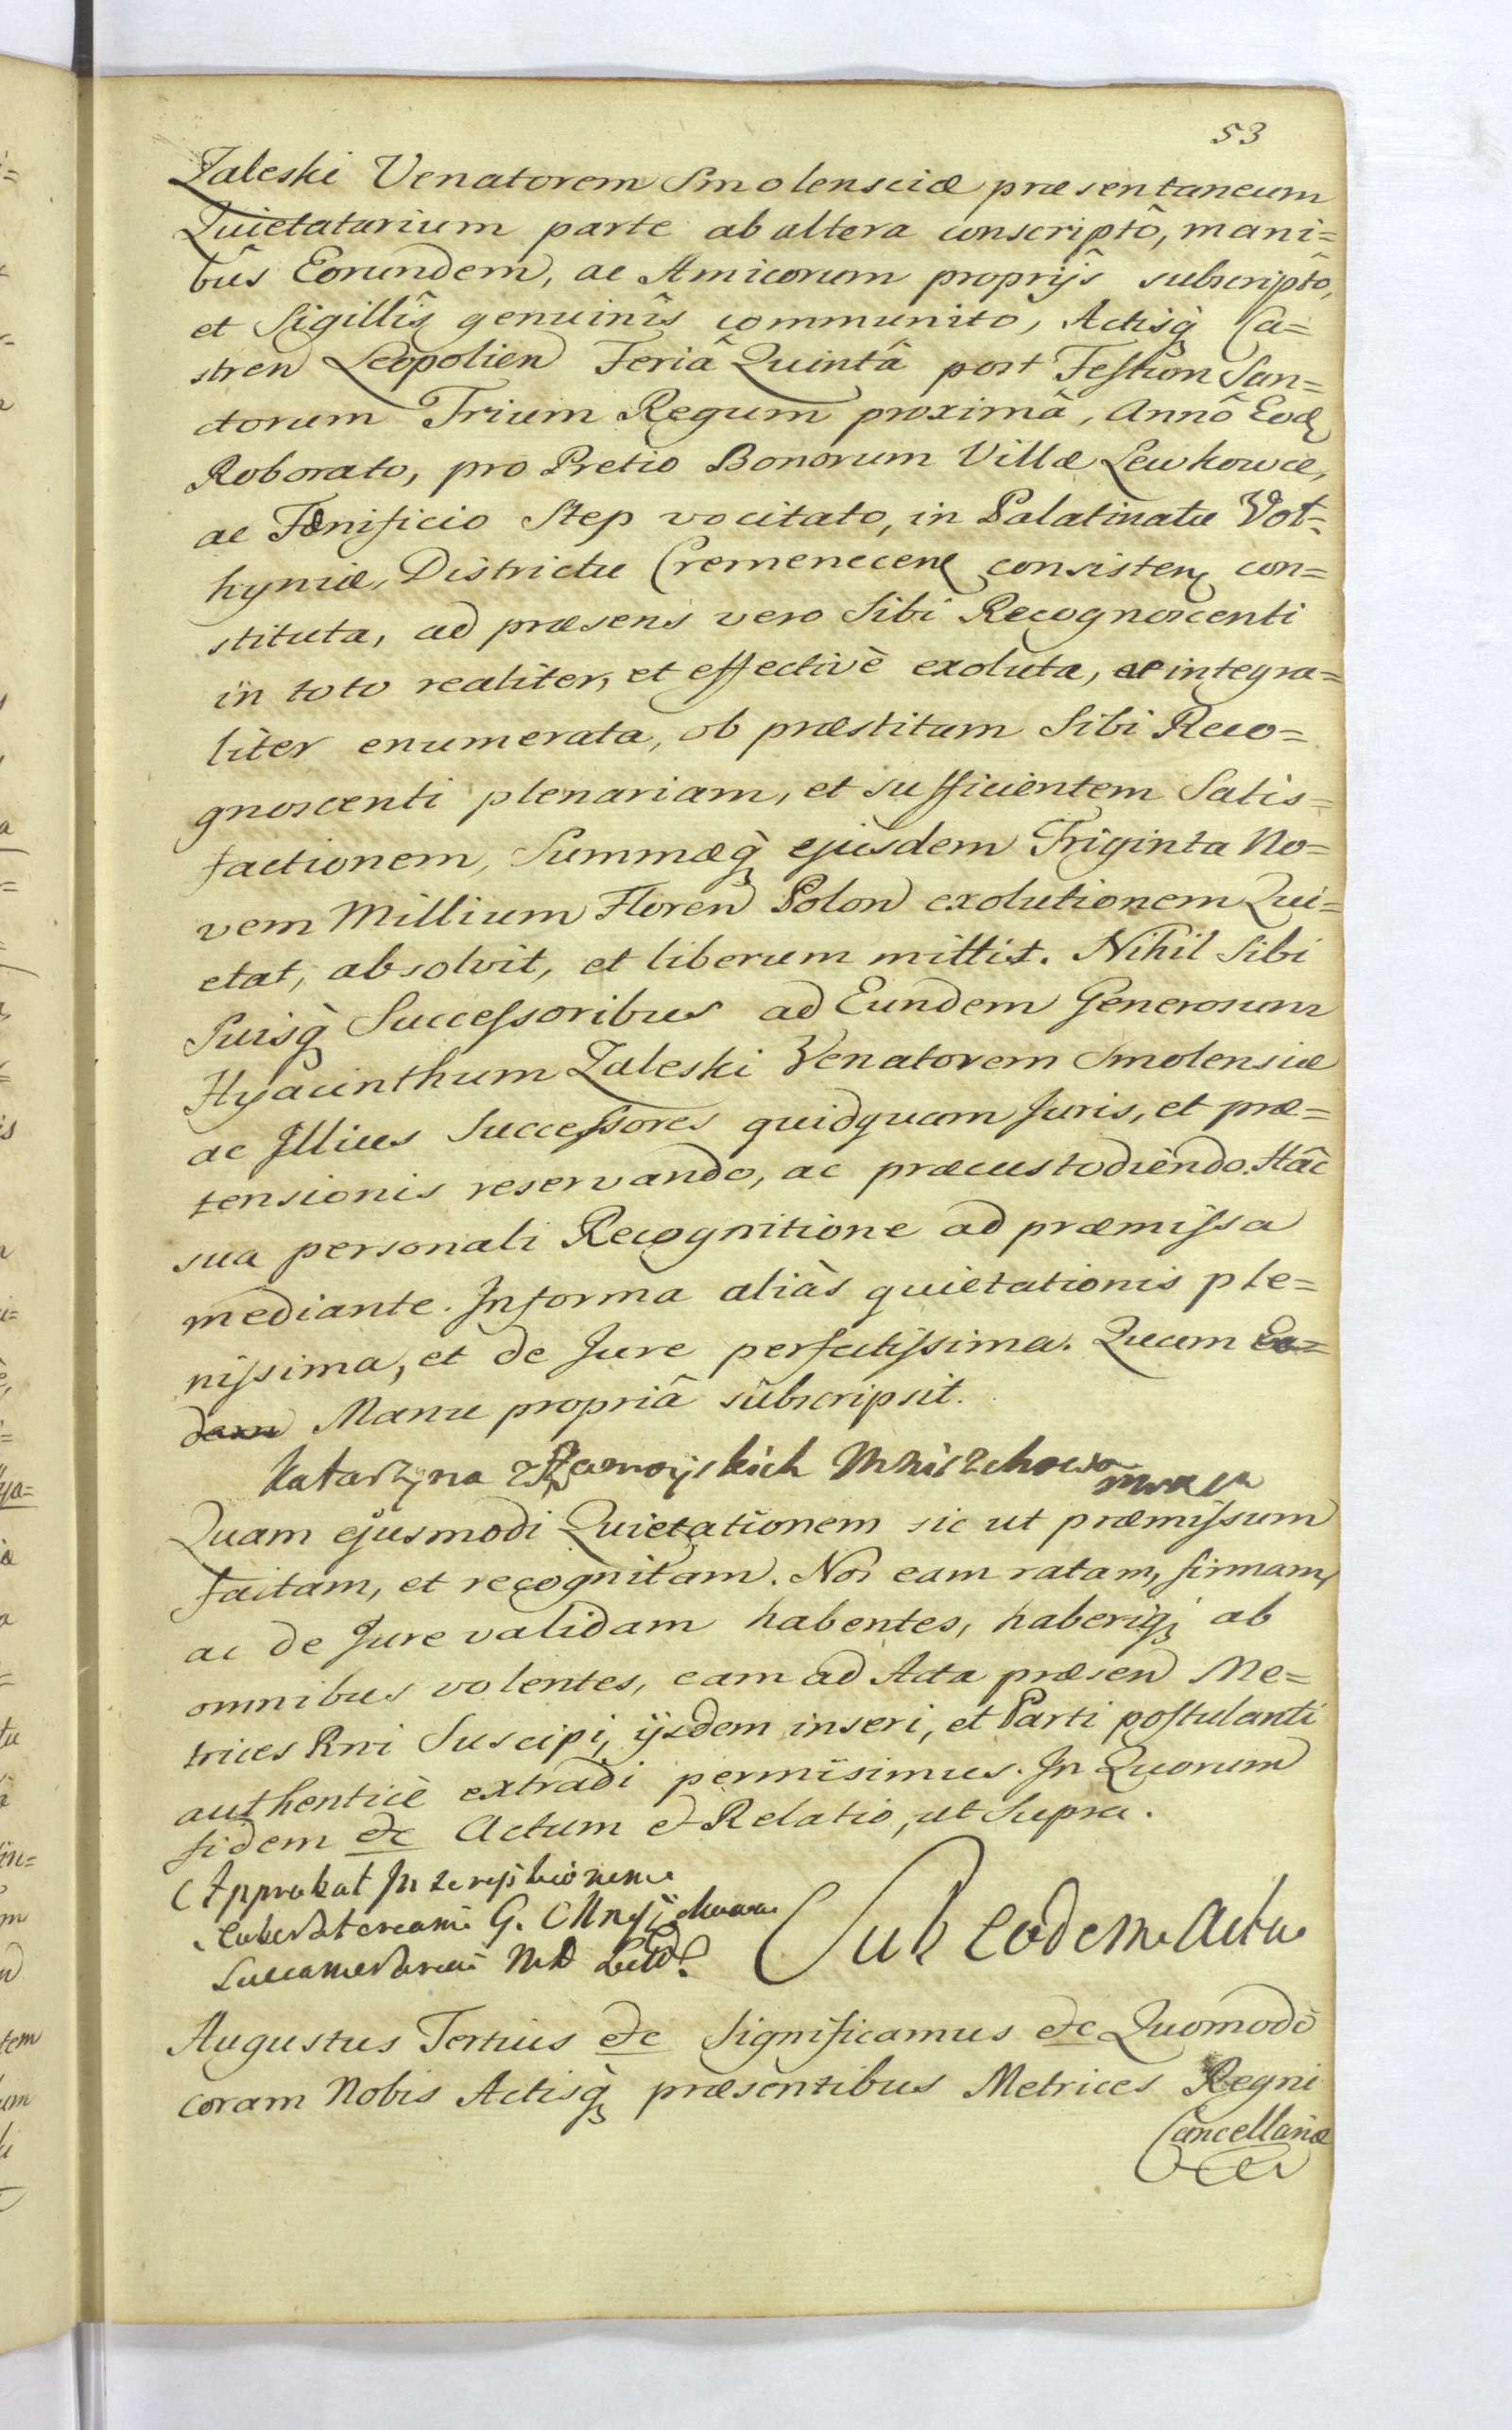 53
Zaleski Venatorem Smolensciæ præsentaneum
Quietatarium parte ab altera conscriptô, mani=
bûs Eorundem, ac Amicorum proprijs subscriptô,
et Sigillîs genuinîs communito, Actisq̀ Ca=
stren Leopolien Feriâ Quintâ post Festum San=
ctorum Trium Regum proximâ, Annô Eod
Roborato, pro Pretio Bonorum Villæ Lewkowce,
ac Fænificio Step vocitato, in Palatinatu Vol=
hyniæ, Districtu Cremenecen consisten con=
stituta, ad præsens vero Sibi Recognoscenti
in toto realiter, et effectivè exoluta, ac integra=
liter enumerata, ob præstitam Sibi Reco=
gnoscenti plenariam, et sufficientem Satis=
factionem, Summæq̀ ejusdem Triginta No=
vem Millium Floren Polon exolutionem Qui=
etat, absolvit, et liberum mittit. Nihil Sibi
Suisq̀ Successoribus ad Eundem Generosum
Hyacinthum Zaleski Venatorem Smolensciæ
ac Illius Successores quidquam Juris, et præ=
tensionis reservando, ac præcustodiendo. Hâc
sua personali Recognitione ad præmissa
mediante. In forma aliàs quietationis ple=
nissima, et de Jure perfectissima. Quam Ea=
dem Manu propriâ subscripsit.
Katarzyna z Zamoyskich Mniszchowa
Quam ejusmodi Quietationem sic ut præmissum
factam, et recognitam. Nos eam ratam, firmam,
ac de Jure validam habentes, haberiq̀ ab
omnibus volentes, eam ad Acta præsen Me=
trices Rni Suscipi, ijsdem inseri, et Parti postulanti
authenticè extradi permisimus. In Quorum
fidem etc Actum et Relatio, ut Supra.
Approbat Inscriptionem
G.
Succamerarii M D Litt.
Sub eodem Actu
Augustus Tertius etc Significamus etc Quomodò
coram Nobis Actisq̀ præsentibus Metrices Regni
Cancellariæ